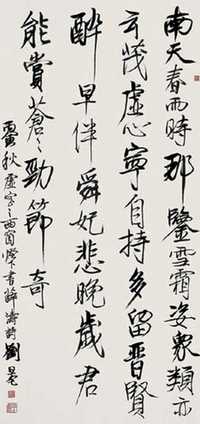 南天春雨時那鑒雪霜姿眾類亦
云茂虛心寧自持多留晉賢
醉早伴舜妃悲晚歲君
能賞蒼〻勁節奇
寅秋虛室之西窗書薛濤詩劉